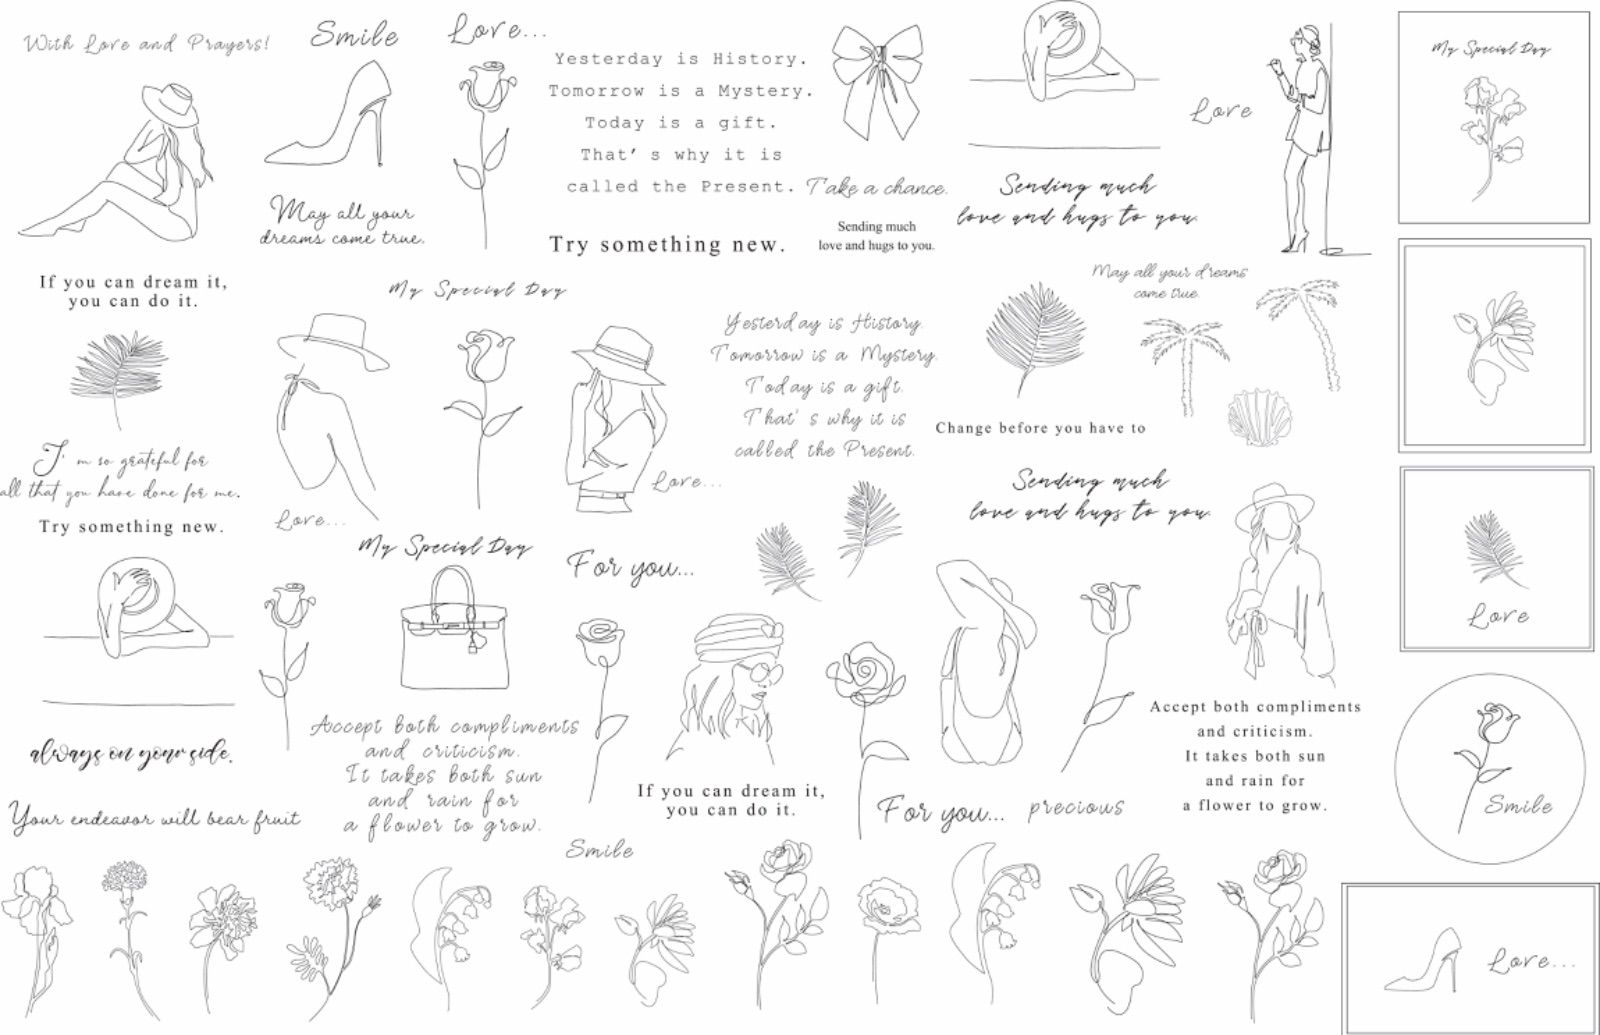 With Love and Prayers!
Smile
Love...
Yesterday is History.
Tomorrow is a Mystery.
Today is a gift.
That's why it is
called the Present.
Try something new.
Take a chance.
Sending much
love and hugs to you.
Sending much
love and hugs to you.
Love
My Special Day
May all your
dreams come true.
If you can dream it,
you can do it.
My Special Day
Yesterday is History.
Tomorrow is a Mystery.
Today is a gift.
That's why it is
called the Present.
May all your dreams
come true.
Change before you have to
I'm so grateful for
all that you have done for me.
Try something new.
Love...
Love...
Sending much
love and hugs to you.
My Special Day
For you...
Love
always on your side.
Accept both compliments
and criticism.
It takes both sun
and rain for
a flower to grow.
If you can dream it,
you can do it.
Accept both compliments
and criticism.
It takes both sun
and rain for
a flower to grow.
Your endeavor will bear fruit
For you...
precious
Smile
Smile
Love...